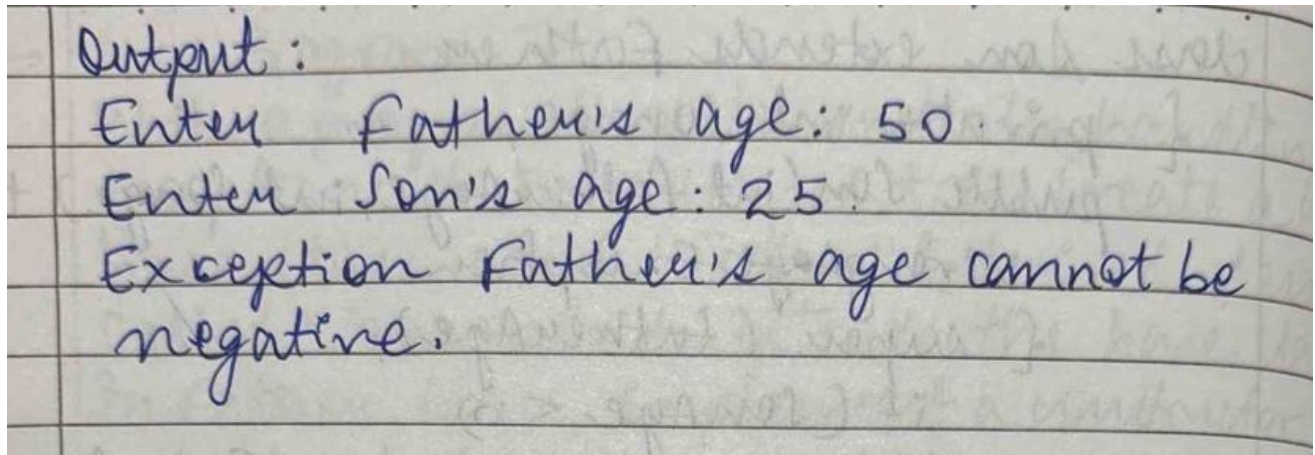 Output:
Enter Father's age: 50.
Enter Son's age: 25.
Exception Father's age cannot be
negative.